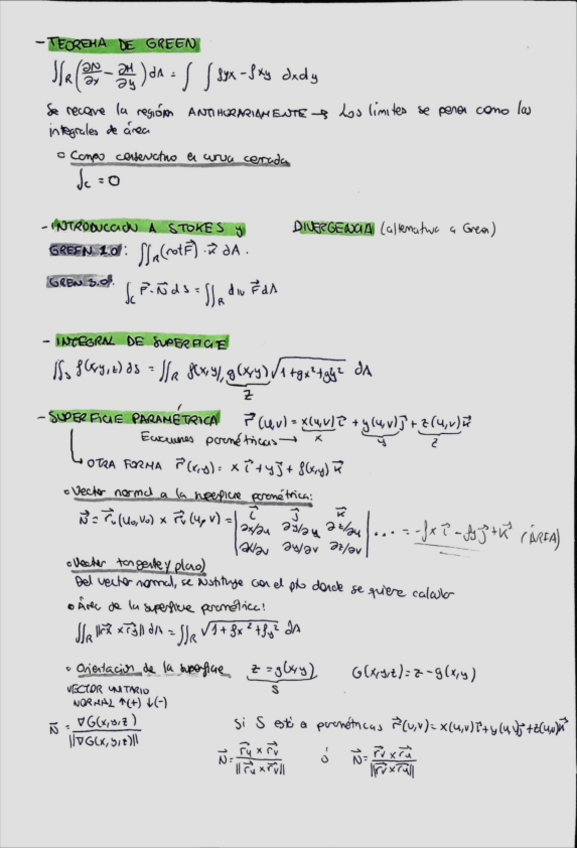 - TEOREMA DE GREEN
∬_R (∂N/∂x − ∂M/∂y) dA = ∫ ∫ fyx − fxy dxdy
Se recorre la región ANTIHORARIAMENTE → Los límites se ponen como las
integrales de área
○ Campo conservativo en curva cerrada
∫_C = 0
- INTRODUCCION A STOKES y DIVERGENCIA (alternativa a Green)
GREEN 2.0: ∬_R (rot F⃗) · k⃗ dA.
GREEN 3.0: ∫_C F⃗ · N⃗ ds = ∬_R div F⃗ dA
- INTEGRAL DE SUPERFICIE
∬_S f(x,y,z) dS = ∬_R f(x,y), g(x,y) √(1+gx²+gy²) dA
z
- SUPERFICIE PARAMÉTRICA r⃗(u,v) = x(u,v) i⃗ + y(u,v) j⃗ + z(u,v) k⃗
Ecuaciones paramétricas → x y z
↳ OTRA FORMA r⃗(x,y) = x i⃗ + y j⃗ + f(x,y) k⃗
○ Vector normal a la superficie paramétrica:
N⃗ = r⃗u(u₀,v₀) × r⃗v(u,v) = | i⃗ j⃗ k⃗ ; ∂x/∂u ∂y/∂u ∂z/∂u ; ∂x/∂v ∂y/∂v ∂z/∂v | ... = −fx i⃗ − fy j⃗ + k⃗ (ÁREA)
○ Vector tangente y plano
Del vector normal, se sustituye con el pto donde se quiere calcular
○ Área de la superficie paramétrica:
∬_R ||r⃗x × r⃗y|| dA = ∬_R √(1+fx²+fy²) dA
○ Orientacion de la superficie z = g(x,y) G(x,y,z) = z − g(x,y)
S
VECTOR UNITARIO
NORMAL ↑(+) ↓(−)
N⃗ = ∇G(x,y,z) / ||∇G(x,y,z)|| Si S está a paramétricas r⃗(u,v) = x(u,v) i⃗ + y(u,v) j⃗ + z(u,v) k⃗
N⃗ = r⃗u × r⃗v / ||r⃗u × r⃗v|| ó N⃗ = r⃗v × r⃗u / ||r⃗v × r⃗u||